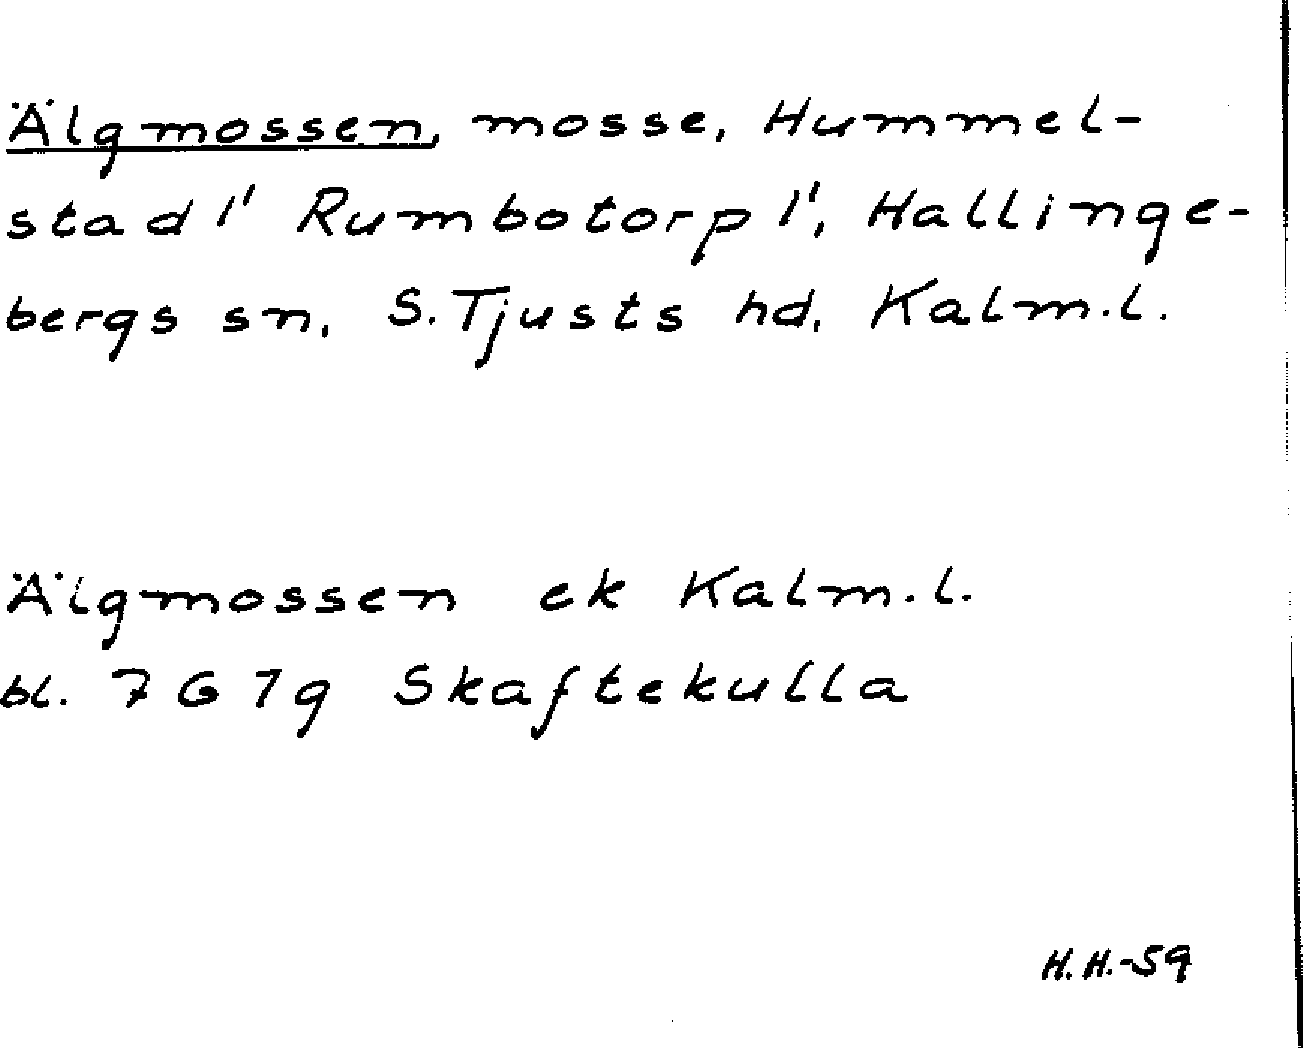 Älgmossen, mosse, Hummel-
stad 1' Rumbotorp 1', Hallinge-
bergs sn, S. Tjusts hd, Kalm.l.
Älgmossen ek Kalm.l.
bl. 7 G 7g Skaftekulla
H.H.-59